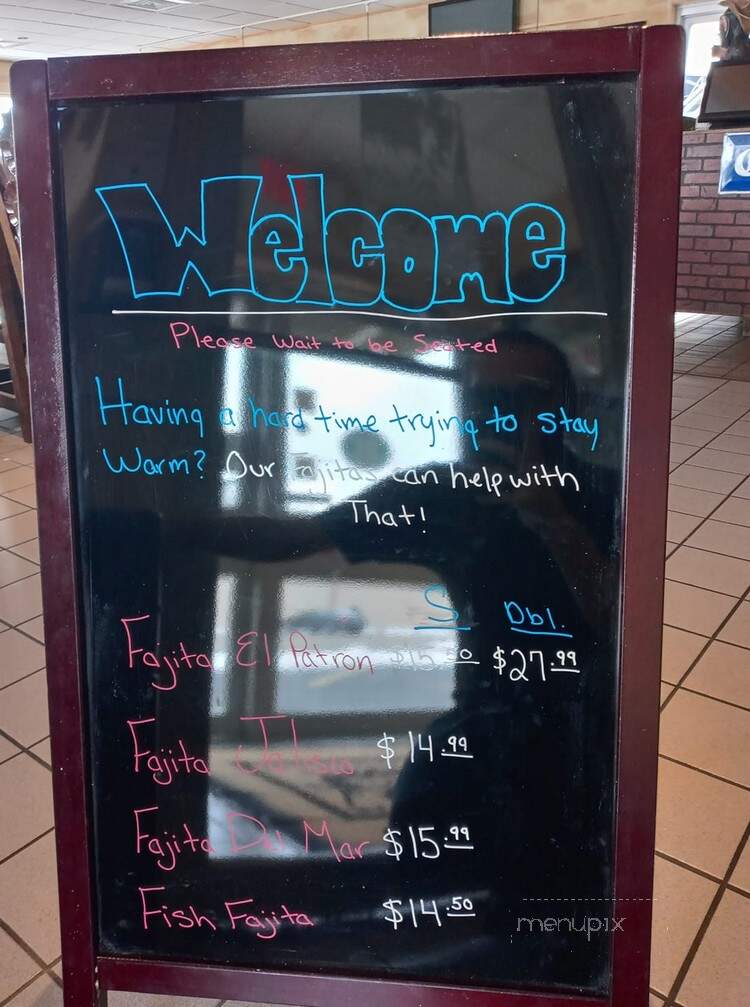 Welcome
Please Wait to be Seated
Having a hard time trying to stay
Warm? Our Fajitas can help with
That!
S Dbl.
Fajita El Patron $15.50 $27.99
Fajita Jalisco $14.99
Fajita Del Mar $15.99
Fish Fajita $14.50
menupix